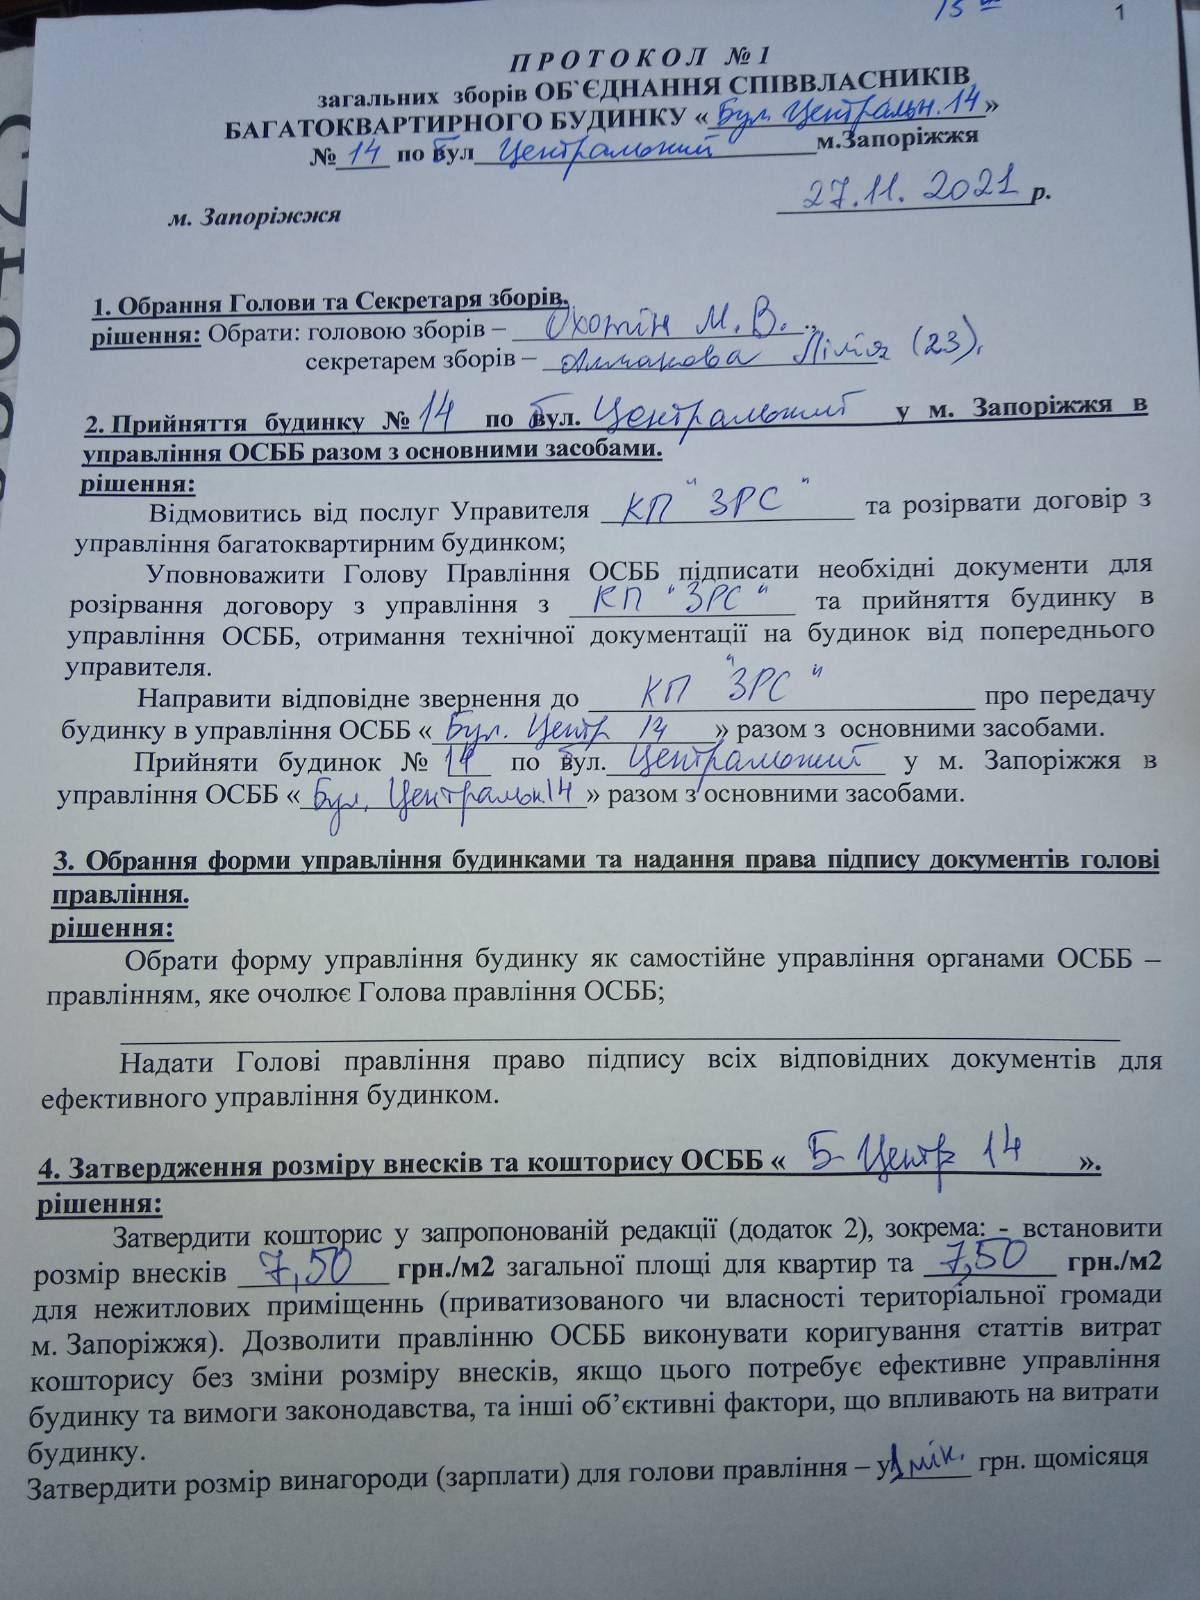 15
1
ПРОТОКОЛ № 1
загальних зборів ОБ`ЄДНАННЯ СПІВВЛАСНИКІВ
БАГАТОКВАРТИРНОГО БУДИНКУ « Бул. Центральн. 14 »
№ 14 по бул Центральний м.Запоріжжя
27.11.2021 р.
м. Запоріжжя
1. Обрання Голови та Секретаря зборів.
рішення: Обрати: головою зборів – Охотін М. В.
секретарем зборів – Лілія (23).
2. Прийняття будинку № 14 по бул. Центральний у м. Запоріжжя в
управління ОСББ разом з основними засобами.
рішення:
Відмовитись від послуг Управителя КП "ЗРС" та розірвати договір з
управління багатоквартирним будинком;
Уповноважити Голову Правління ОСББ підписати необхідні документи для
розірвання договору з управління з КП "ЗРС" та прийняття будинку в
управління ОСББ, отримання технічної документації на будинок від попереднього
управителя.
Направити відповідне звернення до КП "ЗРС" про передачу
будинку в управління ОСББ « Бул. Центр 14 » разом з основними засобами.
Прийняти будинок № 14 по бул. Центральний у м. Запоріжжя в
управління ОСББ « Бул. Централь. 14 » разом з основними засобами.
3. Обрання форми управління будинками та надання права підпису документів голові
правління.
рішення:
Обрати форму управління будинку як самостійне управління органами ОСББ –
правлінням, яке очолює Голова правління ОСББ;
Надати Голові правління право підпису всіх відповідних документів для
ефективного управління будинком.
4. Затвердження розміру внесків та кошторису ОСББ « Б Центр 14 ».
рішення:
Затвердити кошторис у запропонованій редакції (додаток 2), зокрема: - встановити
розмір внесків 7,50 грн./м2 загальної площі для квартир та 7,50 грн./м2
для нежитлових приміщеннь (приватизованого чи власності територіальної громади
м. Запоріжжя). Дозволити правлінню ОСББ виконувати коригування статтів витрат
кошторису без зміни розміру внесків, якщо цього потребує ефективне управління
будинку та вимоги законодавства, та інші об’єктивні фактори, що впливають на витрати
будинку.
Затвердити розмір винагороди (зарплати) для голови правління – у 1 мін. грн. щомісяця